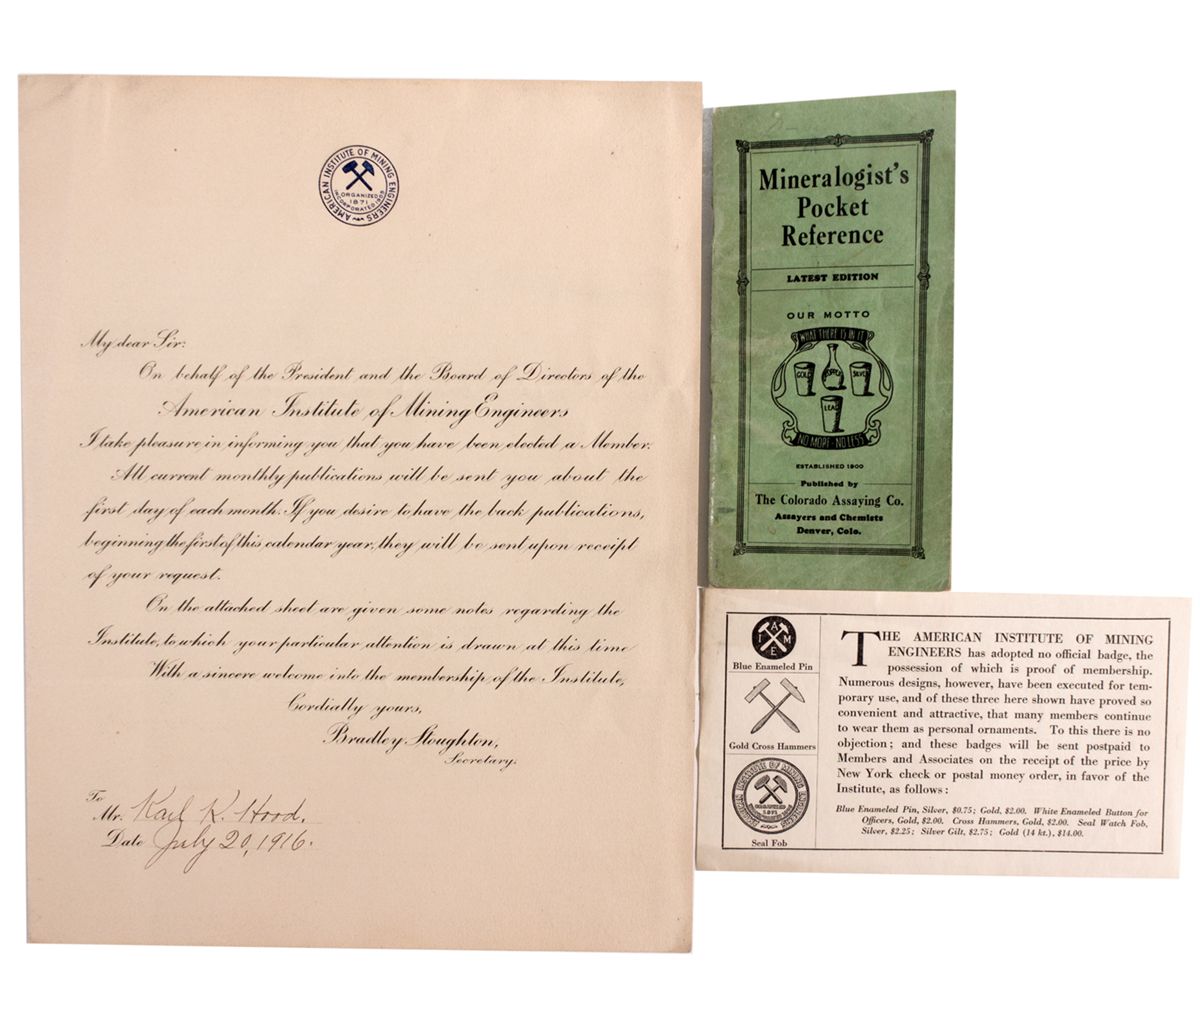 AMERICAN INSTITUTE OF MINING ENGINEERS
ORGANIZED
1871
INCORPORATED 1905
My dear Sir:
On behalf of the President and the Board of Directors of the
American Institute of Mining Engineers
I take pleasure in informing you that you have been elected a Member.
All current monthly publications will be sent you about the
first day of each month. If you desire to have the back publications,
beginning the first of this calendar year, they will be sent upon receipt
of your request.
On the attached sheet are given some notes regarding the
Institute, to which your particular attention is drawn at this time
With a sincere welcome into the membership of the Institute,
Cordially yours,
Bradley Stoughton,
Secretary.
To
Mr. Karl K. Hood.
Date July 20, 1916.
Mineralogist's
Pocket
Reference
LATEST EDITION
OUR MOTTO
WHAT THERE IS IN IT
GOLD
COPPER
SILVER
LEAD
NO MORE - NO LESS
ESTABLISHED 1900
Published by
The Colorado Assaying Co.
Assayers and Chemists
Denver, Colo.
A I M E
Blue Enameled Pin
Gold Cross Hammers
AMERICAN INSTITUTE OF MINING ENGINEERS
ORGANIZED
1871
Seal Fob
THE AMERICAN INSTITUTE OF MINING
ENGINEERS has adopted no official badge, the
possession of which is proof of membership.
Numerous designs, however, have been executed for tem-
porary use, and of these three here shown have proved so
convenient and attractive, that many members continue
to wear them as personal ornaments. To this there is no
objection; and these badges will be sent postpaid to
Members and Associates on the receipt of the price by
New York check or postal money order, in favor of the
Institute, as follows:
Blue Enameled Pin, Silver, $0.75; Gold, $2.00. White Enameled Button for
Officers, Gold, $2.00. Cross Hammers, Gold, $2.00. Seal Watch Fob,
Silver, $2.25; Silver Gilt, $2.75; Gold (14 kt.), $14.00.